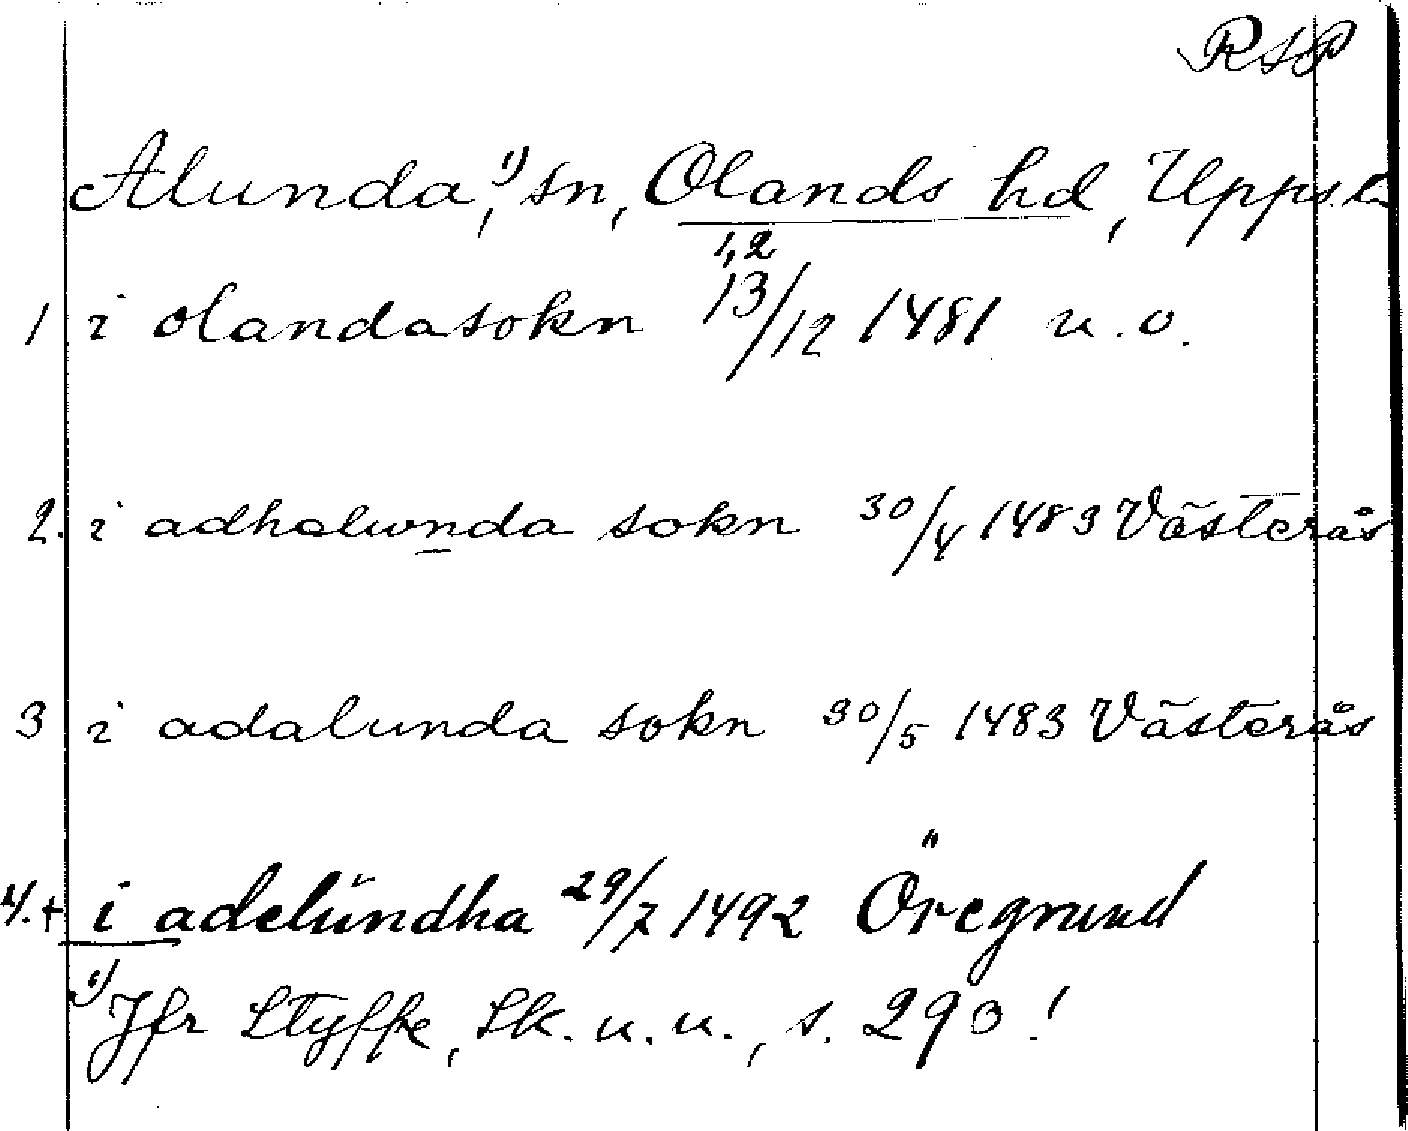 RAP
Alunda,¹⁾ sn, Olands hd, Upps. l.
1,2
1 i olandasokn 13/12 1481 u.o.
2. i adhalunda sokn 30/4 1483 Västerås
3 i adalunda sokn 30/5 1483 Västerås
4.+ i adelŭndha 29/7 1492 Öregrund
¹⁾ Jfr Styffe, Sk. u. u., s. 290!